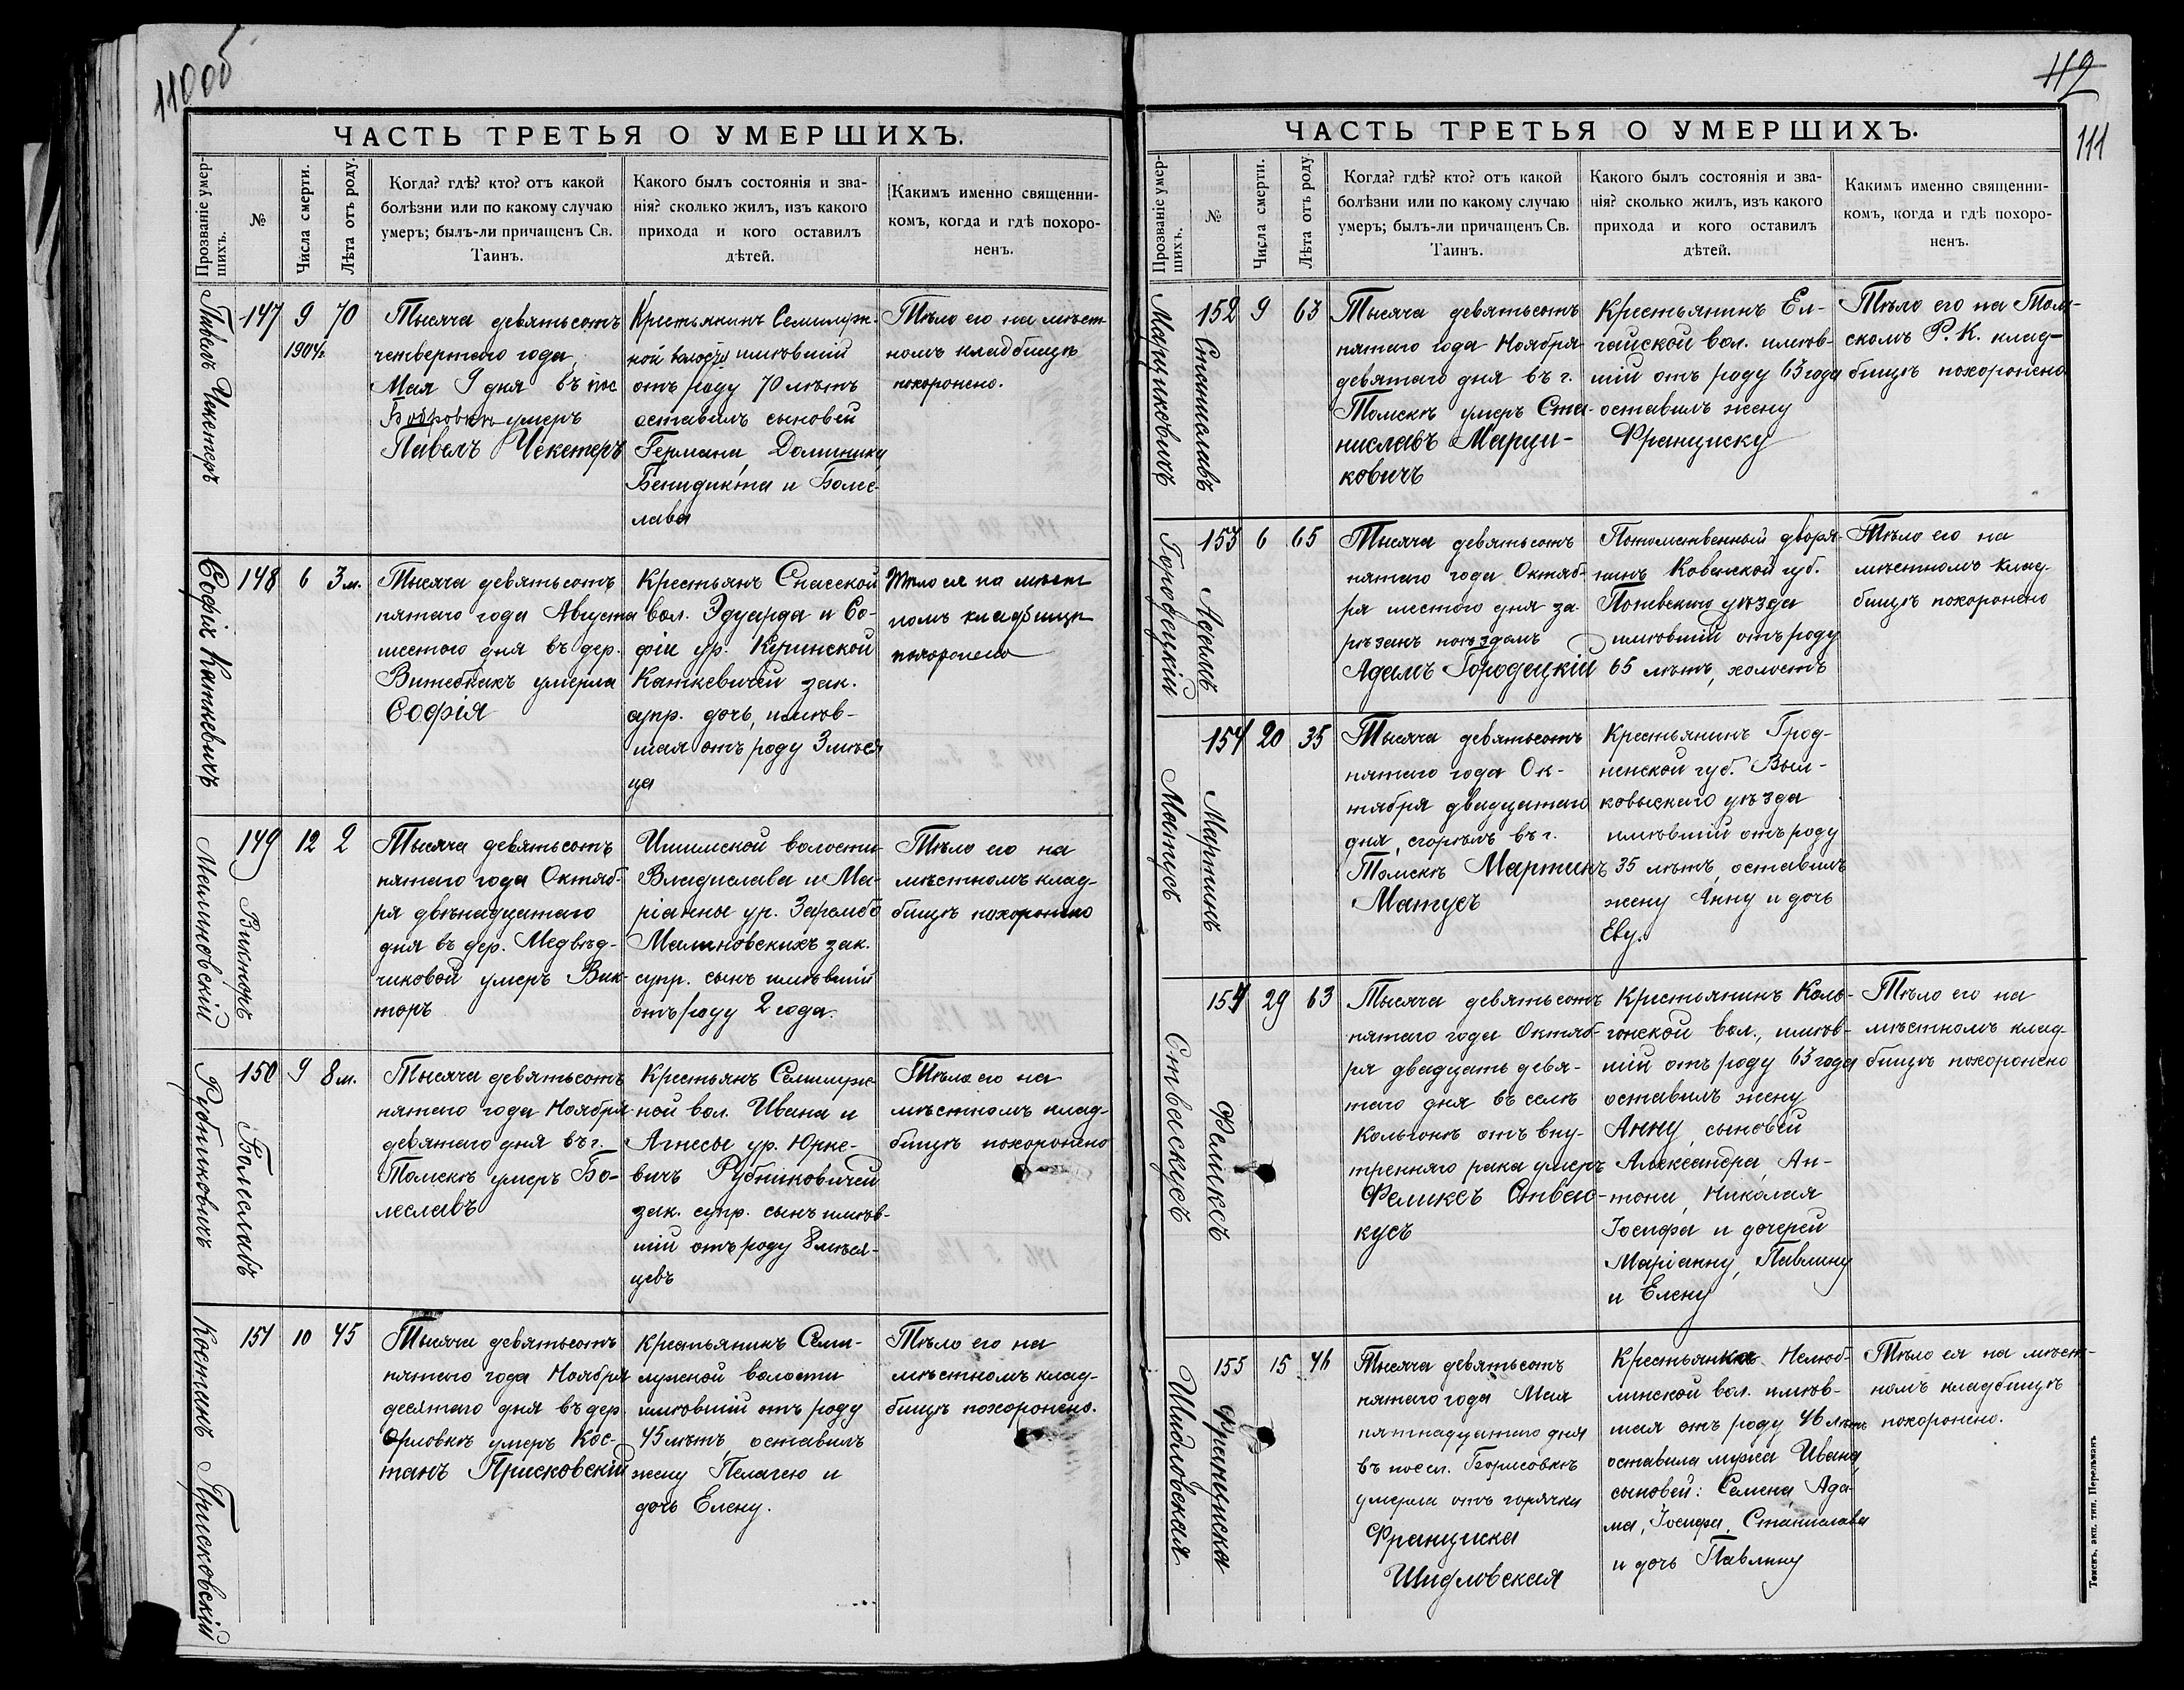 110об
ЧАСТЬ ТРЕТЬЯ О УМЕРШИХЪ.
Прозваніе умер-
шихъ.
№
Числа смерти.
Лѣта отъ роду.
Когда? гдѣ? кто? отъ какой
болѣзни или по какому случаю
умеръ; былъ-ли причащенъ Св.
Таинъ.
Какого былъ состоянія и зва-
нія? сколько жилъ, изъ какого
прихода и кого оставилъ
дѣтей.
Какимъ именно священни-
комъ, когда и гдѣ похоро-
ненъ.
Павелъ Чекетеръ
147
9
1904г
70
Тысяча девятьсотъ
четвертаго года,
Мая 9 дня въ пос
Бобровкѣ умеръ
Павелъ Чекетеръ
Крестьянинъ Семилуж-
ной волости имѣвшій
отъ роду 70 лѣтъ
оставилъ сыновей
Германа, Доминика
Бенидикта и Болес-
лава
Тѣло его на мѣст
номъ кладбищѣ
похоронено.
Софія Каткевичъ
148
6
3 м.
Тысяча девятьсотъ
пятаго года Августа
шестого дня въ дер.
Витебкахъ умерла
Софія
Крестьянъ Спасской
вол. Эдуарда и Со-
фіи ур. Куринской
Каткевичей зак.
супр. дочь, имѣв-
шая отъ роду 3 мѣся
ца
Тѣло ея на мѣст
номъ кладбищѣ
похоронено
Малиновскій
Викторъ
149
12
2
Тысяча девятьсотъ
пятаго года Октяб-
ря двѣнадцатаго
дня въ дер. Медвѣд-
чиковой умеръ Вик-
торъ
Ишимской волости
Владислава и Ма-
ріанны ур. Зарембо
Малиновскихъ зак.
супр. сынъ имѣвшій
отъ роду 2 года.
Тѣло его на
мѣстномъ клад-
бищѣ похоронено
Рубниковичъ
Болеславъ
150
9
8 м.
Тысяча девятьсотъ
пятаго года Ноября
девятаго дня въ г.
Томскѣ умеръ Бо-
леславъ
Крестьянъ Семилуж-
ной вол. Ивана и
Агнесы ур. Юрке-
вичъ Рубниковичей
зак. супр. сынъ имѣв-
шій отъ роду 8 мѣся-
цевъ
Тѣло его на
мѣстномъ клад-
бищѣ похоронено
Костанъ Присковскій
151
10
45
Тысяча девятьсотъ
пятаго года Ноября
десятаго дня въ дер.
Орловкѣ умеръ Кос-
танъ Присковскій
Крестьянинъ Семи-
лужной волости
имѣвшій отъ роду
45 лѣтъ, оставилъ
жену Пелагею и
дочь Елену.
Тѣло его на
мѣстномъ клад-
бищѣ похоронено.
112
111
ЧАСТЬ ТРЕТЬЯ О УМЕРШИХЪ.
Прозваніе умер-
шихъ.
№
Числа смерти.
Лѣта отъ роду.
Когда? гдѣ? кто? отъ какой
болѣзни или по какому случаю
умеръ; былъ-ли причащенъ Св.
Таинъ.
Какого былъ состоянія и зва-
нія? сколько жилъ, изъ какого
прихода и кого оставилъ
дѣтей.
Какимъ именно священни-
комъ, когда и гдѣ похоро-
ненъ.
Марциковичъ
Станиславъ
152
9
63
Тысяча девятьсотъ
пятаго года Ноября
девятаго дня въ г.
Томскѣ умеръ Ста-
ниславъ Марци-
ковичъ
Крестьянинъ Ел-
гайской вол. имѣв-
шій отъ роду 63 года
оставилъ жену
Франциску
Тѣло его на Том-
скомъ Р. К. клад-
бищѣ похоронено
Городецкій
Адамъ
153
6
65
Тысяча девятьсотъ
пятаго года Октяб-
ря шестого дня за-
рѣзанъ поѣздомъ
Адамъ Городецкій
Потомственный дворя-
нинъ Ковенской губ.
Поневского уѣзда
имѣвшій отъ роду
65 лѣтъ, холостъ
Тѣло его на
мѣстномъ клад-
бищѣ похоронено
Матусъ
Мартинъ
154
20
35
Тысяча девятьсотъ
пятаго года Ок-
тября двадцатаго
дня, сгорѣлъ въ г.
Томскѣ Мартинъ
Матусъ
Крестьянинъ Грод-
ненской губ. Выл-
ковыскаго уѣзда
имѣвшій отъ роду
35 лѣтъ, оставилъ
жену Анну и дочь
Еву.
Стпваскусъ
Феликсъ
154
29
63
Тысяча девятьсотъ
пятаго года Октяб-
ря двадцать девя-
таго дня въ селѣ
Кольонѣ отъ вну-
тренняго рака умеръ
Феликсъ Стпвас-
кусъ
Крестьянинъ Коль-
онской вол., имѣв-
шій отъ роду 63 года
оставилъ жену
Анну, сыновей
Александра, Ан-
тона, Николая
Іосифа и дочерей
Маріанну, Павлину
и Елену
Тѣло его на
мѣстномъ клад-
бищѣ похоронено
Шидловская
Франциска
155
15
46
Тысяча девятьсотъ
пятаго года Мая
пятнадцатаго дня
въ посел. Борисовкѣ
умерла отъ горячки
Франциска
Шидловская
Крестьянка Нелюб-
линской вол. имѣв-
шая отъ роду 46 лѣтъ
оставила мужа Ивана,
сыновей: Семена, Ада-
ма, Іосифа, Станислава
и дочь Павлину
Тѣло ея на мѣст-
номъ кладбищѣ
похоронено.
Томскъ, акп. тип. Перельманъ